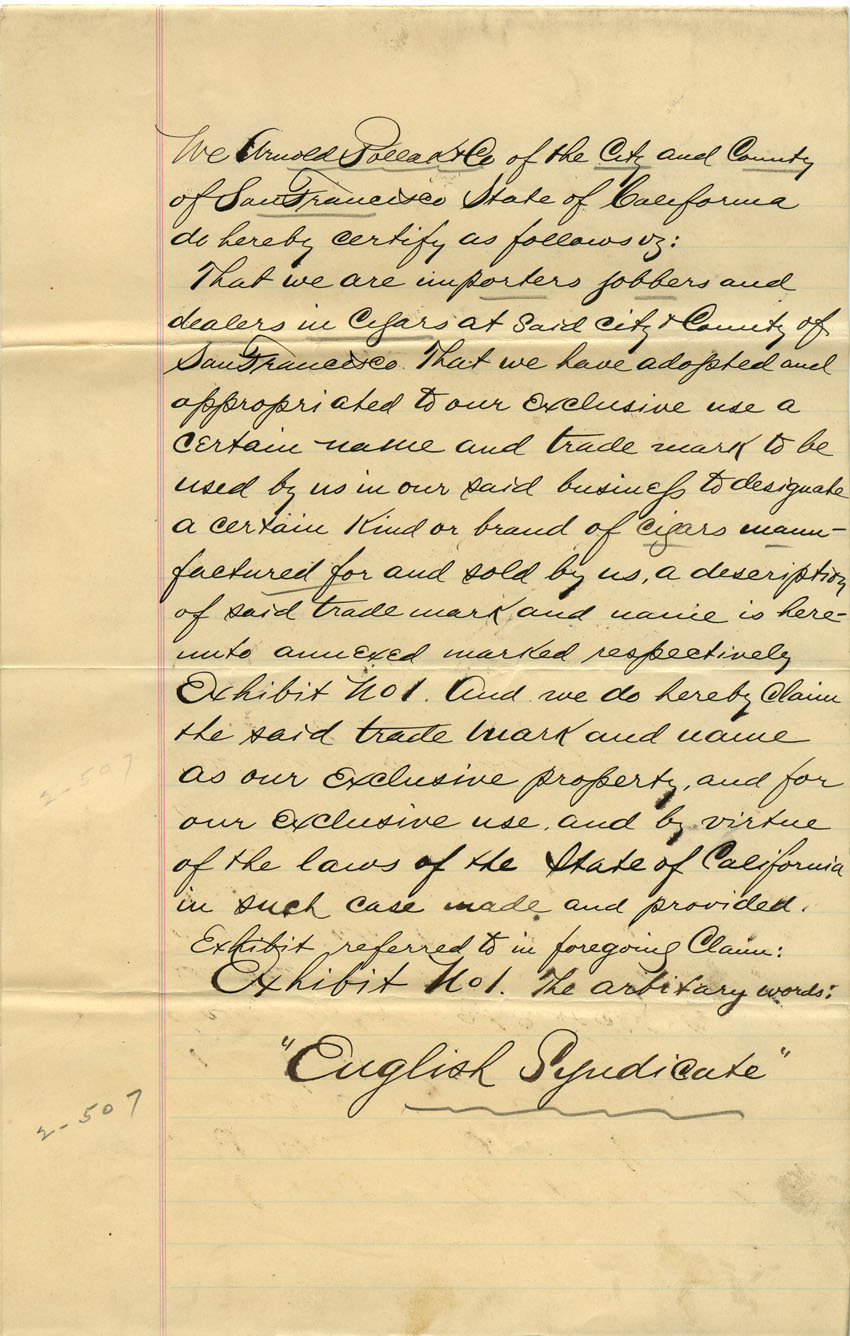 We Arnold Pollak & Co of the City and County
of San Francisco State of California
do hereby certify as follows vz:
That we are importers jobbers and
dealers in Cigars at said city & County of
San Francisco. That we have adopted and
appropriated to our exclusive use a
certain name and trade mark to be
used by us in our said business to designate
a certain kind or brand of cigars manu-
factured for and sold by us, a description
of said trade mark and name is here-
unto annexed marked respectively
Exhibit No 1. And we do hereby Claim
the said trade mark and name
as our exclusive property, and for
our exclusive use, and by virtue
of the laws of the State of California
in such case made and provided.
Exhibit referred to in foregoing Claim:
Exhibit No 1. The arbitary words:
"English Syndicate"
2-507
2-507